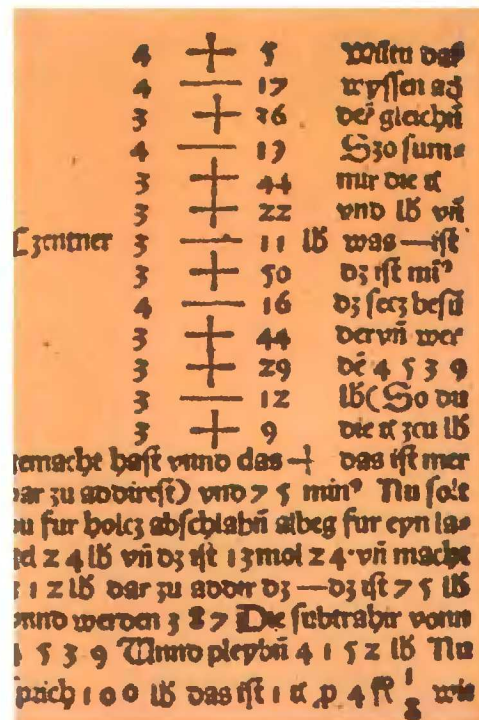 4 + 5 Wiltu das
4 — 17 wyssen ad
3 + 36 der gleichñ
4 — 19 Szo sum⸗
3 + 44 mir die ct
3 + 22 vnd lb vñ
Czentner 3 — 11 lb was — ist
3 + 50 dz ist mi⁹
4 — 16 dz secz besũ
3 + 44 der vñ wer
3 + 29 dē 4 5 3 9
3 — 12 lb (So du
3 + 9 die ct zcu lb
gemacht hast vnnd das + das ist mer
dar zu addirest) vnd 7 5 min⁹ Nu solt
du fur holcz abschlahñ albeg fur eyn la⸗
gel 2 4 lb vñ dz ist 1 3 mol 2 4 · vñ macht
3 1 2 lb dar zu addir dz — dz ist 7 5 lb
vnnd werden 3 8 7 Die subtrahir vonn
4 5 3 9 Vnnd pleybñ 4 1 5 2 lb Nu
sprich 1 0 0 lb das ist 1 ct p 4 fl 1/8 wie